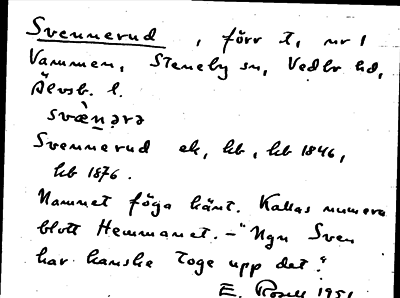 Svennerud, förr t, nr 1
Vammen, Steneby sn, Vedbo hd,
Älvsb. l.
svæ̀n̲ərə
Svennerud ek, kb, kb 1846,
kb 1876.
Namnet föga känt. Kallas numera
blott Hemmanet. – "Ngn Sven
har kanske toge upp det."
E. 1951